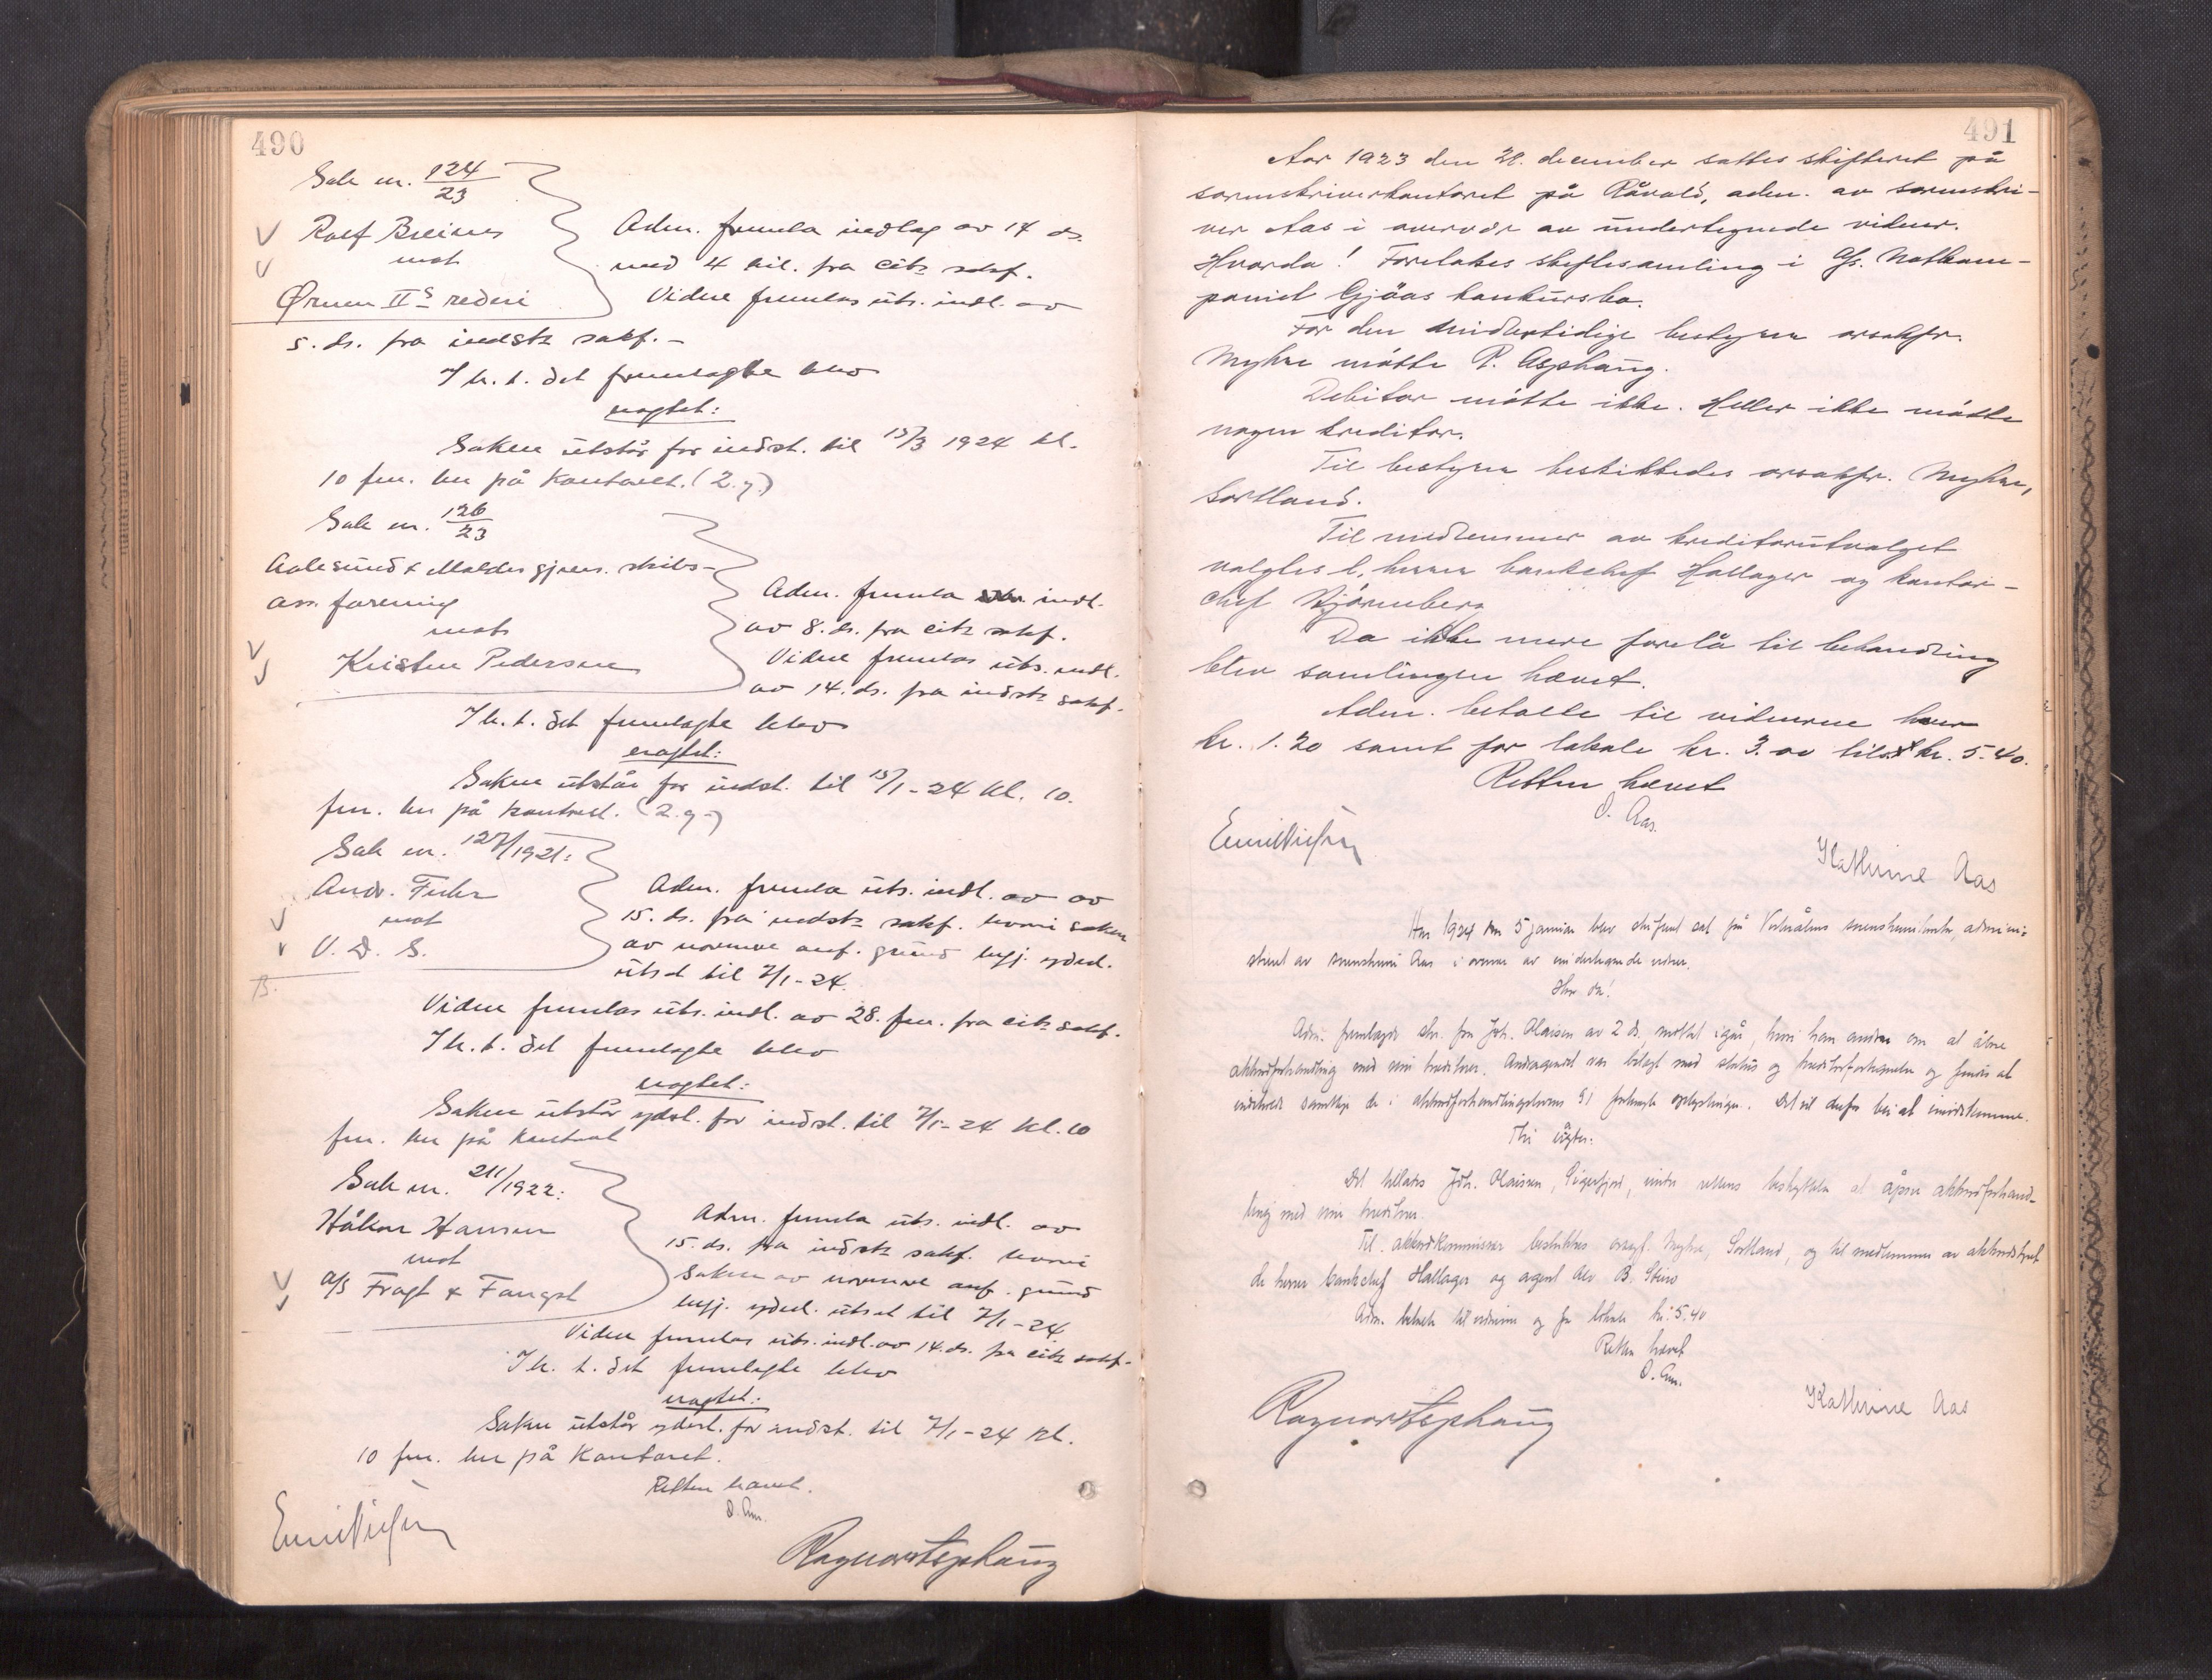 490
Sak nr. 124/23
Rolf Breines
mot
Ørnen IIs rederi
Adm. freml. indlæg av 14 ds.
med 4 bil. fra cits sakf.
Videre fremlas uts. indl. av
5. ds. fra indsts sakf. -
I h. t. det fremlagte blev
eragtet:
Saken utstår for indst. til 15/3 1924 kl.
10 fm. her på kontoret. (2. g.)
Sak nr. 126/23
Aalesund & Moldes gjens. skibs-
ass. forening
mot
Kristen Pedersen
Adm. freml. indl.
av 8. ds. fra cits sakf.
Videre fremlas uts. indl.
av 14. ds. fra indsts sakf.
I h. t. det fremlagte blev
eragtet:
Saken utstår for indst. til 15/1-24 kl. 10.
fm. her på kontoret. (2. g.)
Sak nr. 127/1921:
Andr.
mot
V. D. S.
Adm. freml. uts. indl. av av
15. ds. fra indsts sakf. hvori saken
av nævnte anf. grund begj. yderl.
utsat til 7/1-24.
Videre fremlas uts. indl. av 28. fm. fra cits sakf.
I h. t. det fremlagte blev
eragtet:
Saken utstår yderl. for indst. til 7/1-24 kl. 10
fm. her på kontoret
Sak nr. 211/1922:
Håkon Hansen
mot
A/S Fragt & Fangst
Adm. freml. uts. indl. av
15. ds. fra indsts sakf. hvori
saken av nævnte anf. grund
begj. yderl. utsat til 7/1-24
Videre fremlas uts. indl. av 14. ds. fra cits sakf.
I h. t. det fremlagte blev
eragtet:
Saken utstår yderl. for indst. til 7/1-24 kl.
10 fm. her på kontoret.
Retten hævet.
O. Aas.
Ragnar Asphaug
491
Aar 1923 den 28. december sattes skifteret på
sorenskriverkontoret på Råvold, adm. av sorenskri-
ver Aas i overvær av undertegnede vidner.
Hvorda! Foretokes skiftesamling i A/s. Notkom-
paniet Gjöas konkursbo.
For den midlertidige bestyrer orsakfr.
Myhre måtte P. Asphaug.
Debitor måtte ikke. Heller ikke måtte
nogen kreditor.
Til bestyrer beskikkedes orsakfr. Myhre,
Sortland.
Til medlemmer av kreditorutvalget
valgtes herrer bankchef Hallager og kontor-
chef Stjärnberg
Da ikke mere forelå til behandling
blev samlingen hævet.
Adm. betalte til vidnerne hver
kr. 1.20 samt for lokale kr. 3.00 tils. kr. 5.40.
Retten hævet
O. Aas.
Kathrine Aas
Aar 1924 den 5 januar blev skifteret sat på Vesterålens sorenskriverkontor, admini-
streret av sorenskriver Aas i overvær av undertegnede vidner.
Hvor da!
Adm. fremlagde skr. fra Joh. Olaisen av 2 ds., mottat igår, hvori han andrar om at åbne
akkordforhandling med sine kreditorer. Andragendet var bilagt med status og kreditorfortegnelse og fandtes at
indeholde samtlige de i akkordforhandlingslovens §1 forlangte oplysninger. Det vil derfor bli at imøtekomme.
Thi eragtes:
Det tillates Joh. Olaisen, Sigerfjord, under rettens beskyttelse at åpne akkordforhand-
ling med sine kreditorer.
Til akkordkommissær beskikkes orsagf. Myhre, Sortland, og til medlemmer av akkordstyret
de herrer bankchef Hallager og agent Alv B. Steiro
Adm. betalte til vidnerne og for lokale kr. 5.40
Retten hævet
O. Aas.
Ragnar Asphaug
Kathrine Aas